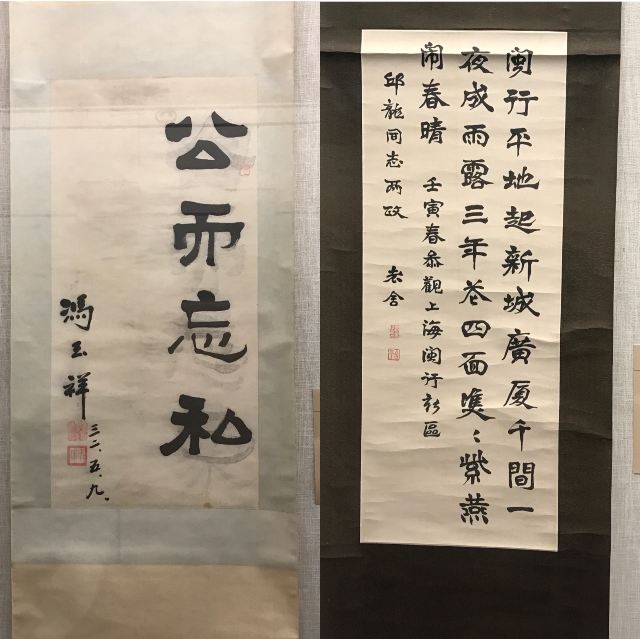 公而忘私
馮玉祥
三二、五、九、
閔行平地起新城廣厦千間一
夜成雨露三年花四面雙〻紫燕
闹春晴
壬寅春参觀上海閔行新區
邱龍同志两政
老舍